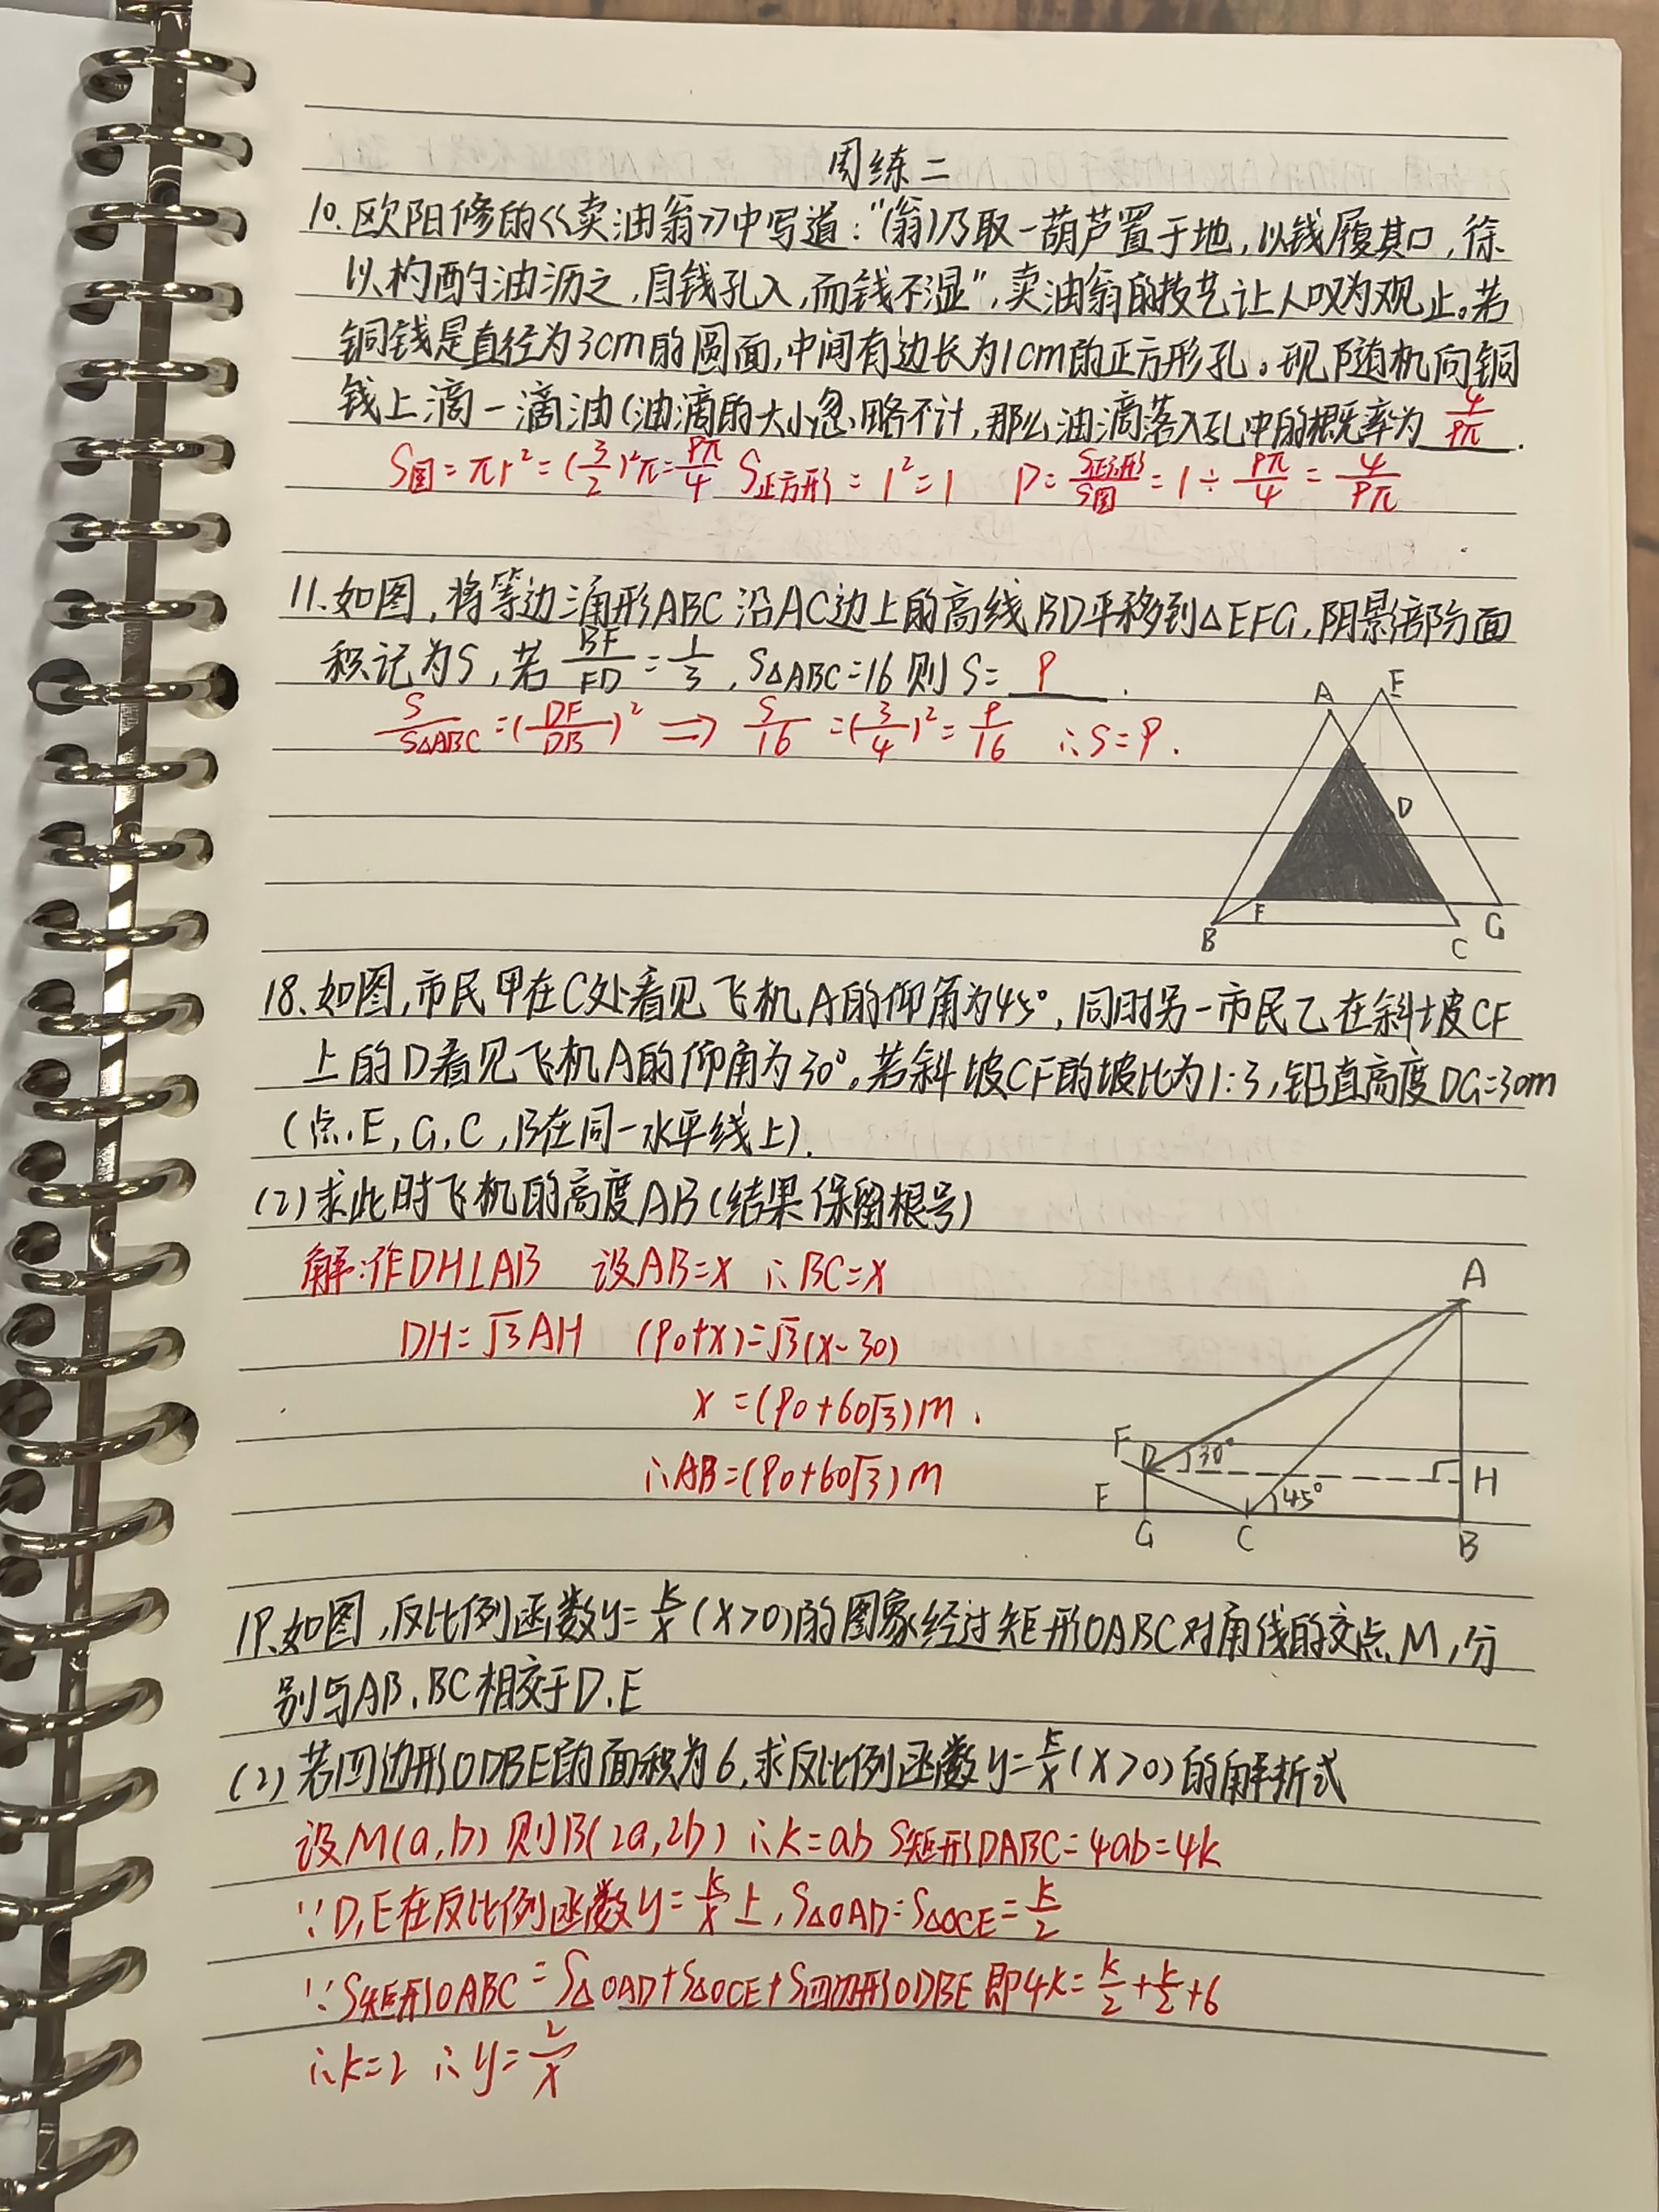 周练二
10.欧阳修的《卖油翁》中写道:"(翁)乃取一葫芦置于地,以钱履其口,徐
以杓酌油沥之,自钱孔入,而钱不湿",卖油翁的技艺让人叹为观止。若
铜钱是直径为3cm的圆面,中间有边长为1cm的正方形孔。现随机向铜
钱上滴一滴油(油滴的大小忽略不计,那么油滴落入孔中的概率为 4/9π .
S圆=πr²=(3/2)²π=9π/4 S正方形=1²=1 P=S正方形/S圆=1÷9π/4=4/9π
11.如图,将等边三角形ABC沿AC边上的高线BD平移到△EFG,阴影部分面
积记为S,若BF/FD=1/3,S△ABC=16则S= 9 .
S/S△ABC=(DF/DB)² ⇒ S/16=(3/4)²=9/16 ∴S=9.
A E
D
F
B C G
18.如图,市民甲在C处看见飞机A的仰角为45°,同时另一市民乙在斜坡CF
上的D看见飞机A的仰角为30°。若斜坡CF的坡比为1:3,铅直高度DG=30m
(点E,G,C,B在同一水平线上).
(2)求此时飞机的高度AB(结果保留根号)
解:作DH⊥AB 设AB=x ∴BC=x
DH=√3AH (90+x)=√3(x-30)
x=(90+60√3)m.
∴AB=(90+60√3)m
A
F D 30° H
E 45°
G C B
19.如图,反比例函数y=k/x(x>0)的图象经过矩形OABC对角线的交点M,分
别与AB、BC相交于D、E
(2)若四边形ODBE的面积为6,求反比例函数y=k/x(x>0)的解折式
设M(a,b)则B(2a,2b)∴k=ab S矩形OABC=4ab=4k
∵D,E在反比例函数y=k/x上,S△OAD=S△OCE=k/2
∵S矩形OABC=S△OAD+S△OCE+S四边形ODBE即4k=k/2+k/2+6
∴k=2 ∴y=2/x